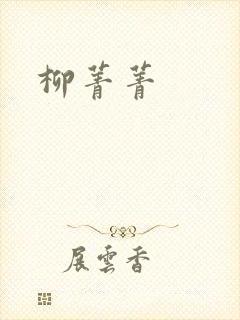 柳菁菁
展雲香